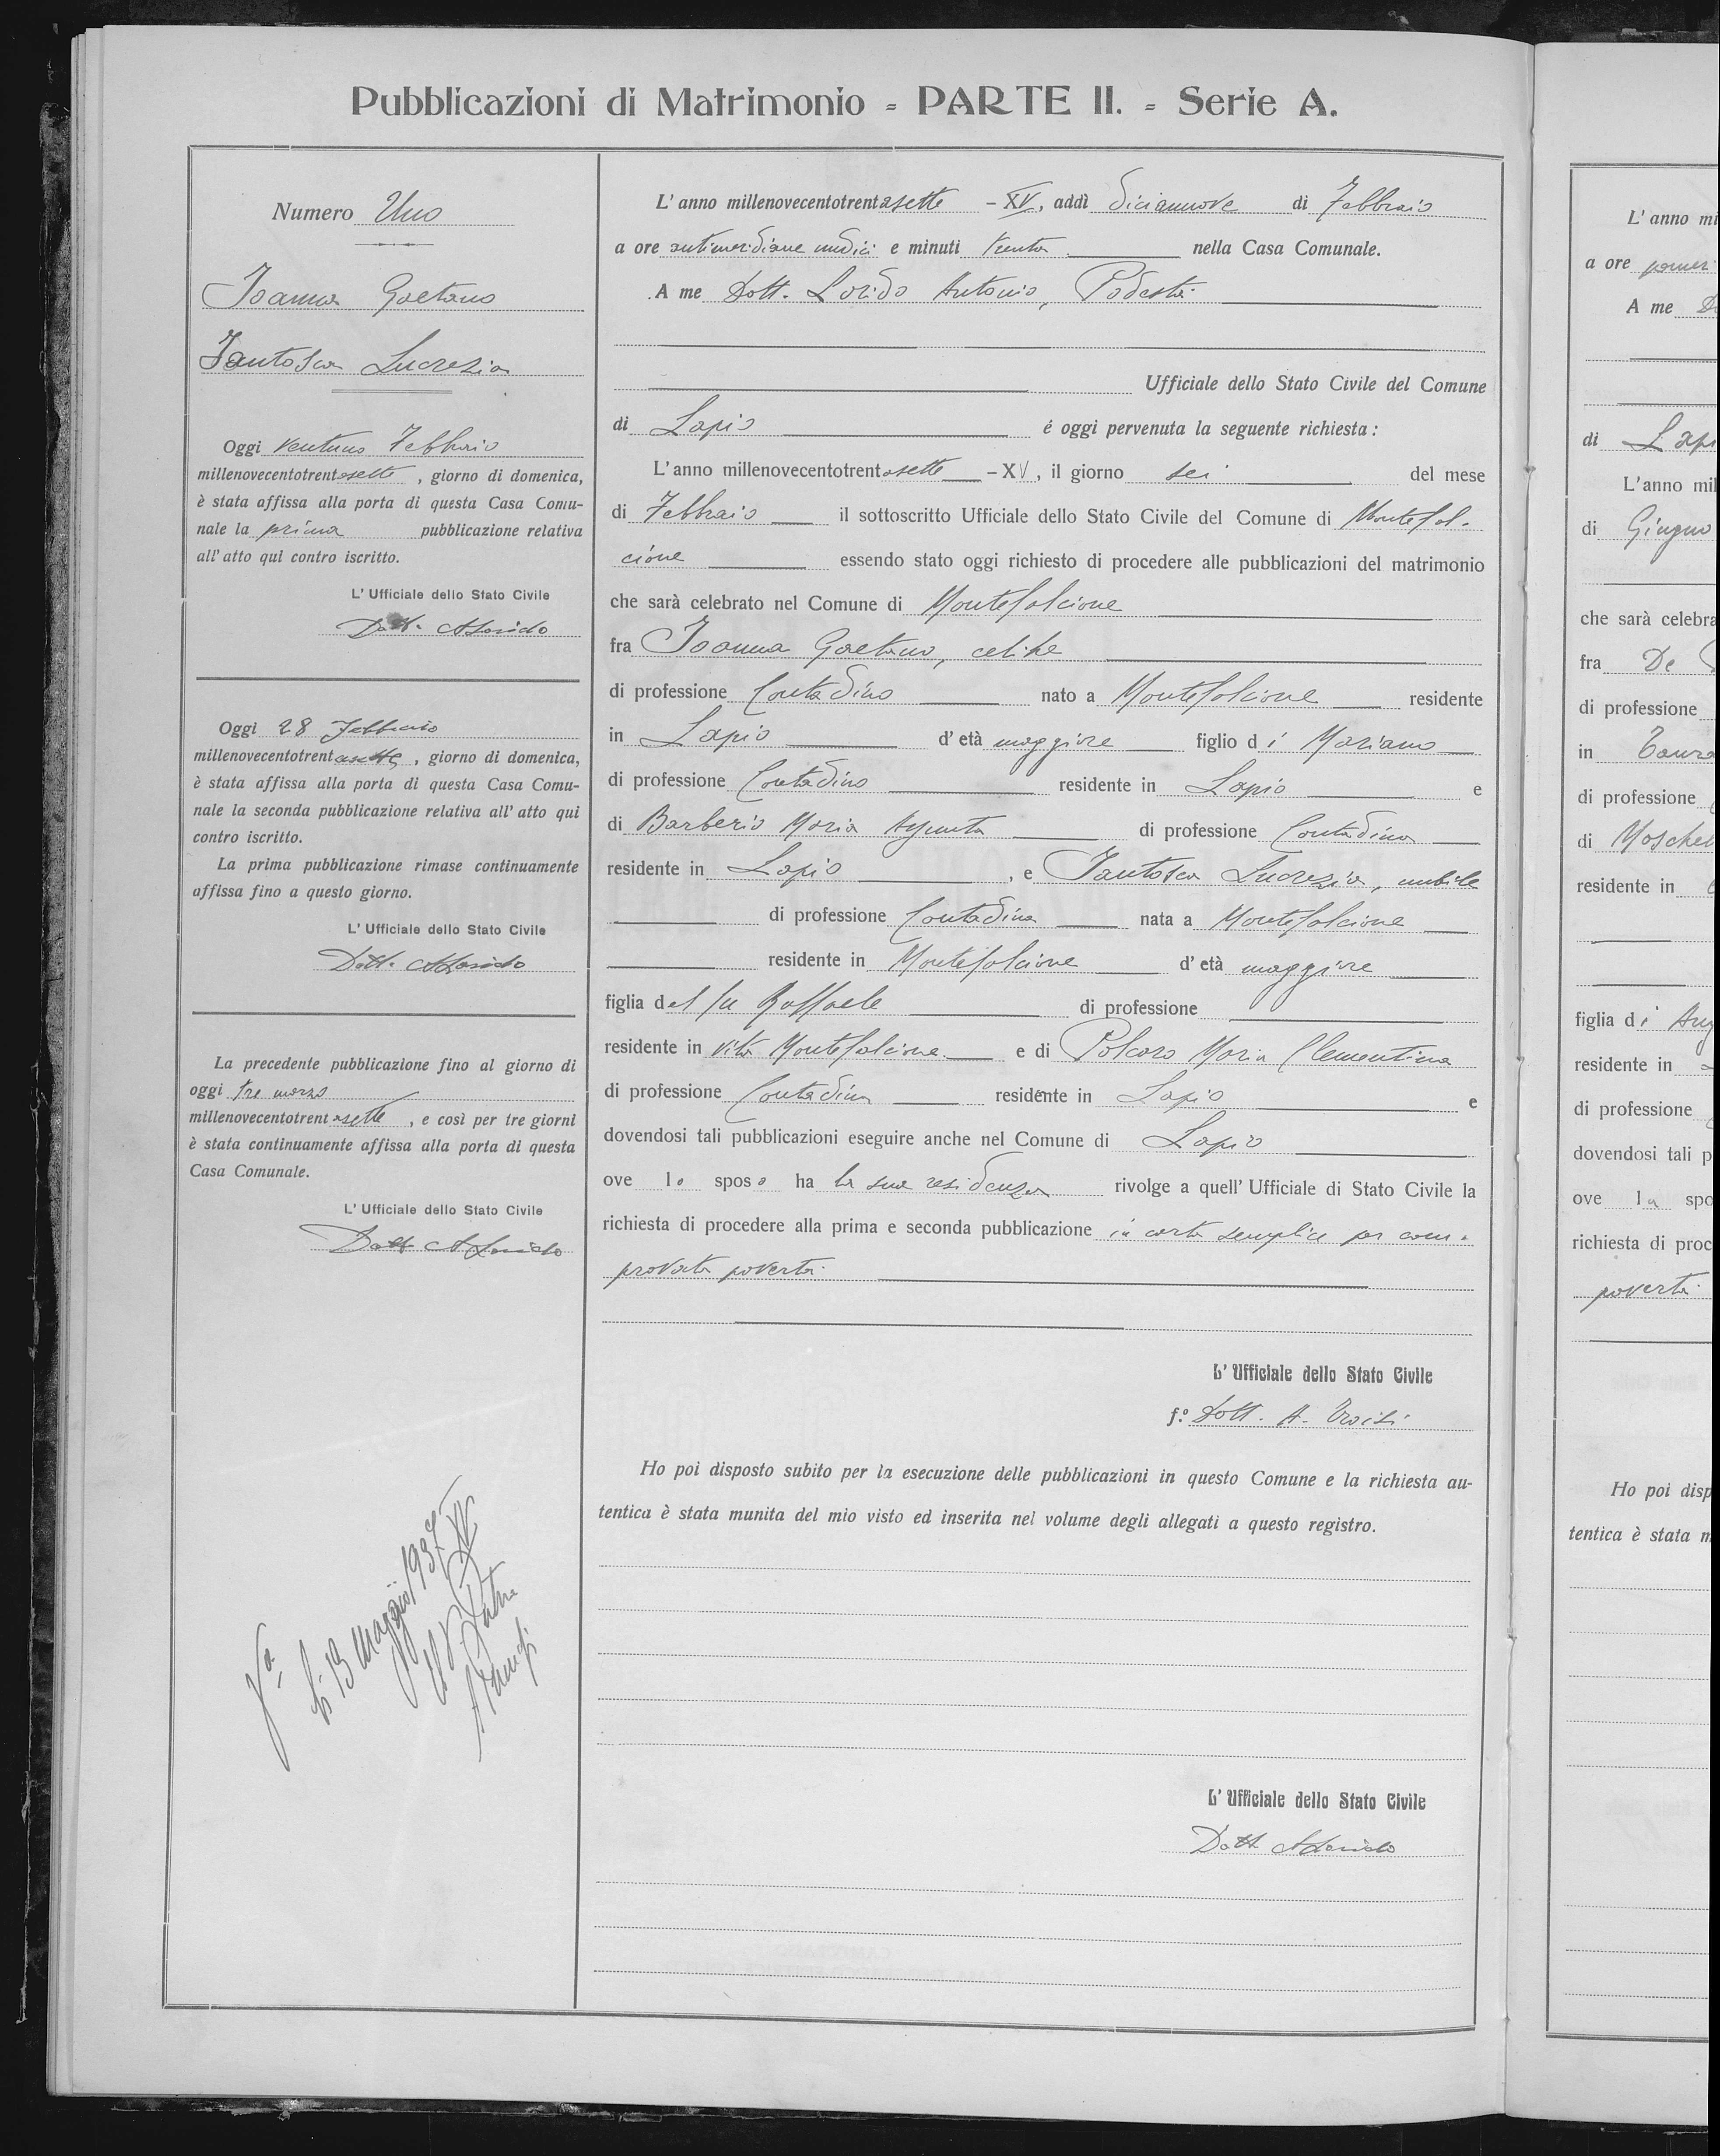 Pubblicazioni di Matrimonio = PARTE II. = Serie A.
Numero Uno
Ioanna Gaetano
Fantosca Lucrezia
Oggi ventuno Febbraio
millenovecentotrentasette, giorno di domenica,
è stata affissa alla porta di questa Casa Comu-
nale la prima pubblicazione relativa
all' atto qui contro iscritto.
L' Ufficiale dello Stato Civile
Dott. A Lorido
Oggi 28 Febbraio
millenovecentotrentasette, giorno di domenica,
è stata affissa alla porta di questa Casa Comu-
nale la seconda pubblicazione relativa all' atto qui
contro iscritto.
La prima pubblicazione rimase continuamente
affissa fino a questo giorno.
L' Ufficiale dello Stato Civile
Dott. A Lorido
La precedente pubblicazione fino al giorno di
oggi tre marzo
millenovecentotrentasette, e così per tre giorni
è stata continuamente affissa alla porta di questa
Casa Comunale.
L' Ufficiale dello Stato Civile
Dott A Lorido
li 13 maggio 1937 XV
L' anno millenovecentotrentasette - XV, addì diciannove di Febbraio
a ore antimeridiane undici e minuti trenta nella Casa Comunale.
A me Dott. Lorido Antonio, Podestà
Ufficiale dello Stato Civile del Comune
di Lapio é oggi pervenuta la seguente richiesta:
L' anno millenovecentotrentasette - XV, il giorno sei del mese
di Febbraio il sottoscritto Ufficiale dello Stato Civile del Comune di Montefal-
cione essendo stato oggi richiesto di procedere alle pubblicazioni del matrimonio
che sarà celebrato nel Comune di Montefalcione
fra Ioanna Gaetano, celibe
di professione Contadino nato a Montefalcione residente
in Lapio d' età maggiore figlio di Mariano
di professione Contadino residente in Lapio e
di Barberio Maria Assunta di professione Contadina
residente in Lapio, e Fantosca Lucrezia, nubile
di professione Contadina nata a Montefalcione
residente in Montefalcione d' età maggiore
figlia del fu Raffaele di professione
residente in vita Montefalcione e di Polcaro Maria Clementina
di professione Contadina residente in Lapio e
dovendosi tali pubblicazioni eseguire anche nel Comune di Lapio
ove lo sposo ha la sua residenza rivolge a quell' Ufficiale di Stato Civile la
richiesta di procedere alla prima e seconda pubblicazione in carta semplice per com-
provata povertà
L' Ufficiale dello Stato Civile
f.º Dott. A. Troisi
Ho poi disposto subito per la esecuzione delle pubblicazioni in questo Comune e la richiesta au-
tentica è stata munita del mio visto ed inserita nel volume degli allegati a questo registro.
L' Ufficiale dello Stato Civile
Dott A Lorido
L' anno mi
a ore pomer
A me D
di Lapi
L' anno mil
di Giugno
che sarà celebra
fra De
di professione
in Taura
di professione
di Moschel
residente in
figlia di Ang
residente in
di professione
dovendosi tali p
ove la spo
richiesta di proc
povertà
Ho poi disp
tentica è stata m